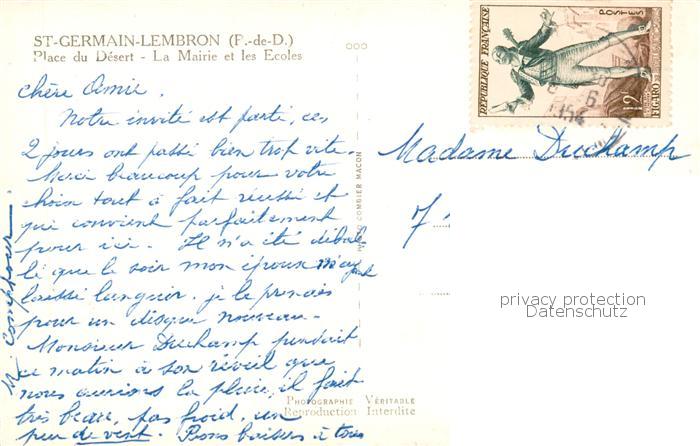 ST-GERMAIN-LEMBRON (P.-de-D.)
Place du Désert - La Mairie et les Ecoles
chère Amie.
Notre invité est parti, ces
2 jours ont passé bien trop vite.
Merci beaucoup pour votre
choix tout à fait réussi et
qui convient parfaitement
pour ici. Il n'a été débal
lé que le soir mon époux m'ayant
laissé languir. je le prenais
pour un disque nouveau.
Monsieur Duchamp pensait
ce matin à son réveil que
nous aurions la pluie, il fait
très beau, pas froid, un
peu de vent. Bons baisers à tous
M.
PHOTO COMBIER MACON
PHOTOGRAPHIE VÉRITABLE
Reproduction Interdite
RÉPUBLIQUE FRANÇAISE
POSTES
12F
FIGARO
6
1954
Madame Duchamp
7
privacy protection
Datenschutz